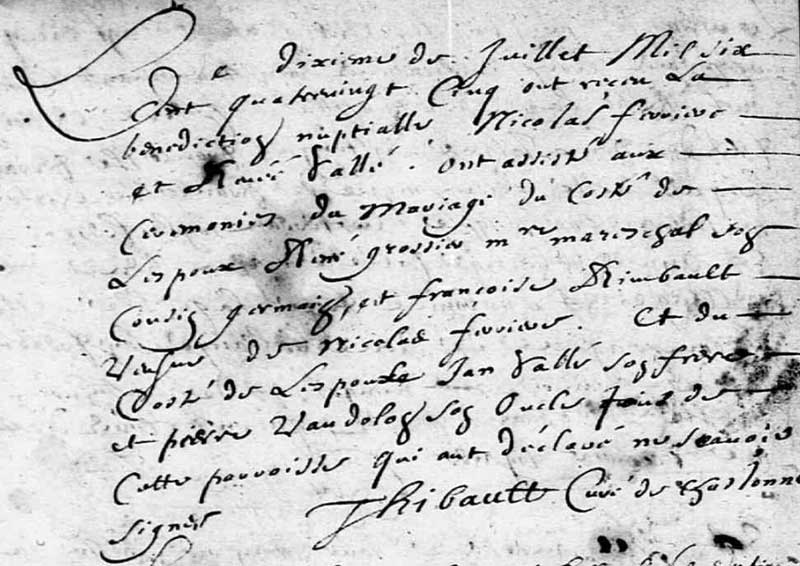 Le dixieme de Juillet Mil six
Cent quatrevingt Cinq ont receu La
benediction nuptialle Nicolas ferriere
et Renée Vallé. Ont assisté aux
Ceremonies du Mariage du Costé de
Lespoux René grossier mre mareschal son
Cousin germain et françoise Rimbault
Vefve de Nicolas ferriere. Et du
Costé de Lespouse Jan Vallé son frere
et pierre Vaudolon son Oncle tous de
Cette parroisse qui ont déclaré ne scavoir
signer Thibault Curé de